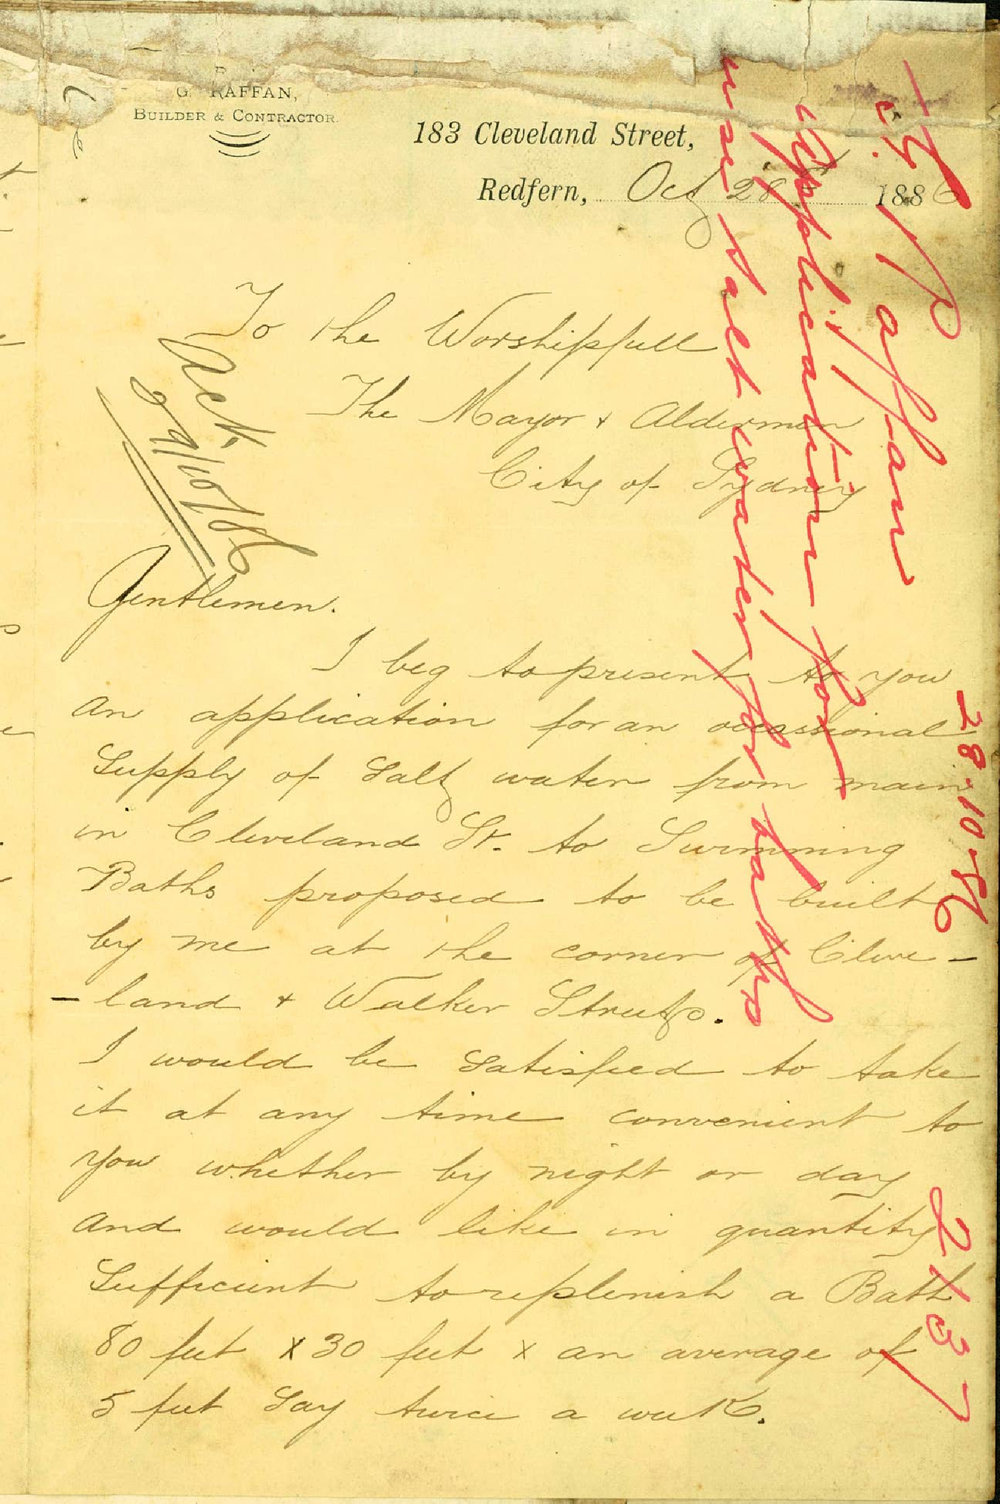 G. RAFFAN,
BUILDER & CONTRACTOR.
183 Cleveland Street,
Redfern, Oct 28th 1886
To the Worshipfull
The Mayor & Aldermen
City of Sydney
Ack
29/10/86
Gentlemen.
I beg to present to you
an application for an occassional
Supply of Salt water from main
in Cleveland St. to Swimming
Baths proposed to be built
by me at the corner of Cleve-
-land & Walker Streets.
I would be Satisfied to take
it at any time convenient to
you whether by night or day
and would like in quantity
Sufficient to replenish a Bath
80 feet x 30 feet x an average of
5 feet Say twice a week.
Raffan
Application for
use salt water for baths
28.10.86
2137